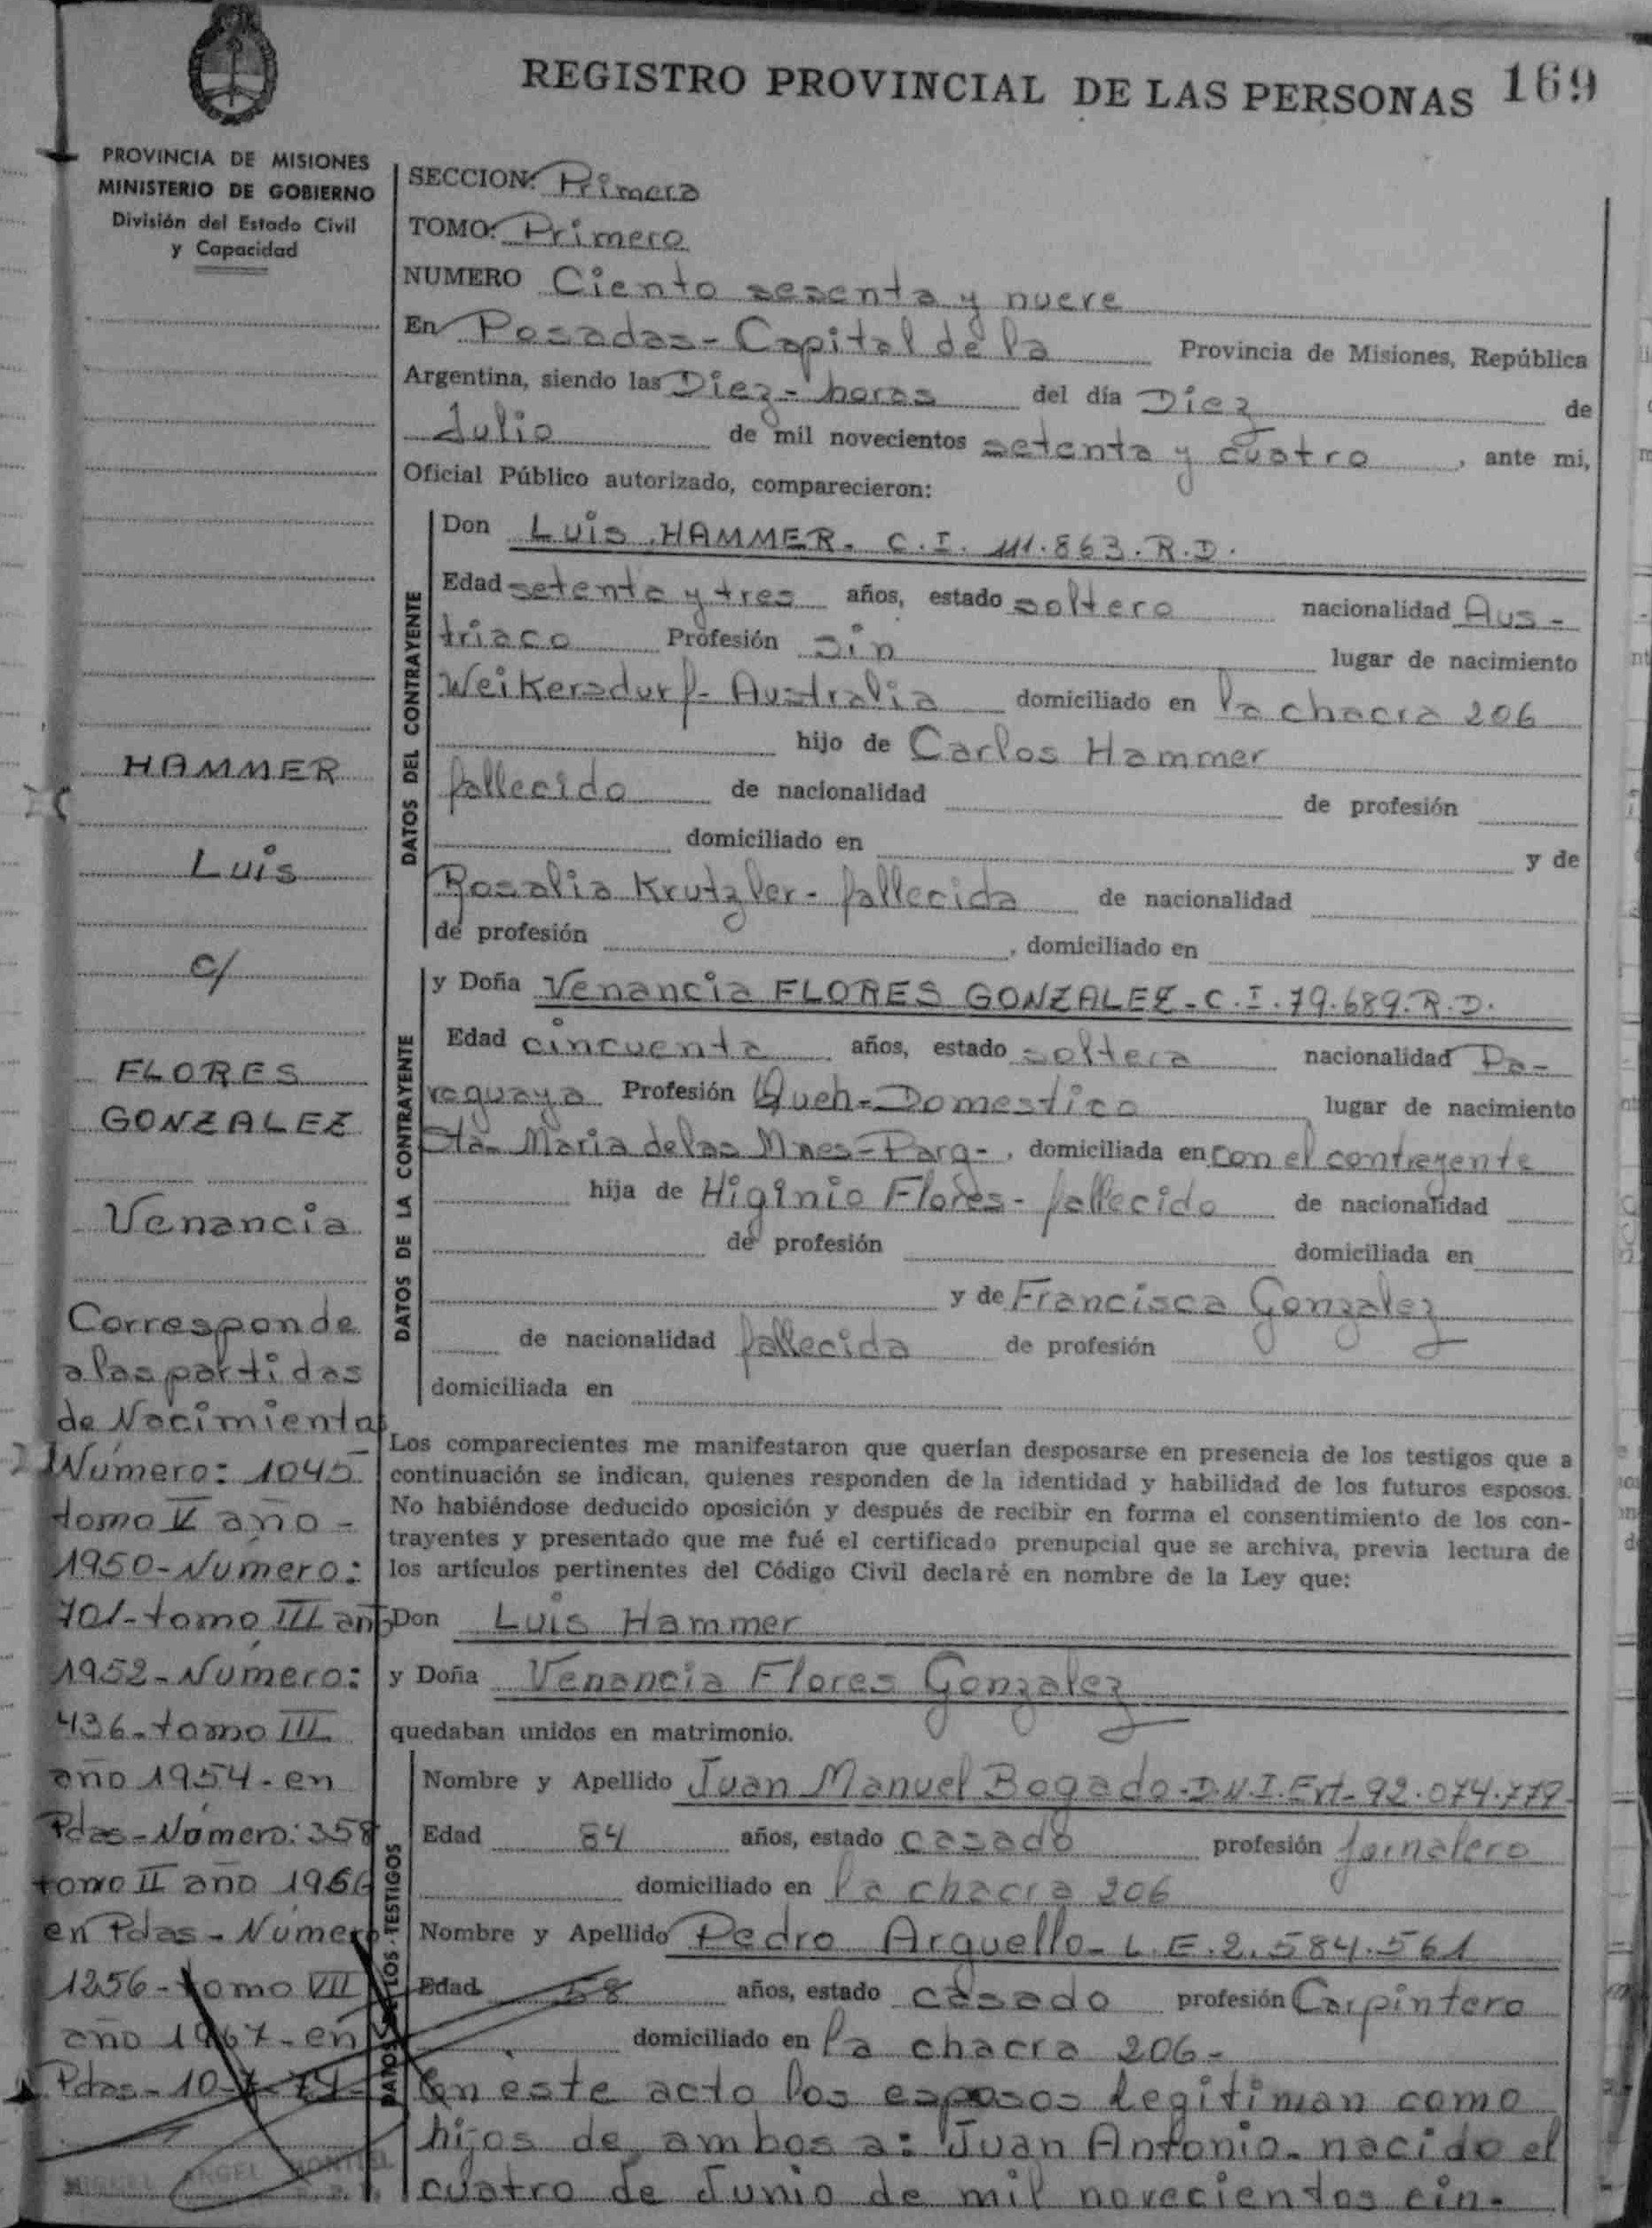 REGISTRO PROVINCIAL DE LAS PERSONAS 169
PROVINCIA DE MISIONES
MINISTERIO DE GOBIERNO
División del Estado Civil
y Capacidad
HAMMER
Luis
c/
FLORES
GONZALEZ
Venancia
Corresponde
a las partidas
de Nacimiento
Número: 1045
tomo V año -
1950-Número:
701-tomo III año
1952-Número:
436-tomo III
año 1954-en
Pdas-Número: 358
tomo II año 1966
en Pdas-Número
1256-tomo VII
año 1967-en
Pdas-10-7-74-
MIGUEL ANGEL MONTIEL
SECCION: Primera
TOMO: Primero
NUMERO Ciento sesenta y nueve
En Posadas-Capital de la Provincia de Misiones, República
Argentina, siendo las Diez-horas del día Diez de
Julio de mil novecientos setenta y cuatro, ante mi,
Oficial Público autorizado, comparecieron:
DATOS DEL CONTRAYENTE
Don Luis HAMMER- C.I. 111.863.R.D.
Edad setenta y tres años, estado soltero nacionalidad Aus-
triaco Profesión Sin lugar de nacimiento
Weikersdurf-Australia domiciliado en la chacra 206
hijo de Carlos Hammer
fallecido de nacionalidad de profesión
domiciliado en y de
Rosalia Krutzler-fallecida de nacionalidad
de profesión , domiciliado en
DATOS DE LA CONTRAYENTE
y Doña Venancia FLORES GONZALEZ-C.I.79.689.R.D.
Edad cincuenta años, estado soltera nacionalidad Pa-
raguaya Profesión Queh-Domestico lugar de nacimiento
Sta-Maria de las Mnes-Parg-, domiciliada en con el contrayente
hija de Higinio Flores-fallecido de nacionalidad
de profesión domiciliada en
y de Francisca Gonzalez
de nacionalidad fallecida de profesión
domiciliada en
Los comparecientes me manifestaron que querían desposarse en presencia de los testigos que a
continuación se indican, quienes responden de la identidad y habilidad de los futuros esposos.
No habiéndose deducido oposición y después de recibir en forma el consentimiento de los con-
trayentes y presentado que me fué el certificado prenupcial que se archiva, previa lectura de
los artículos pertinentes del Código Civil declaré en nombre de la Ley que:
Don Luis Hammer
y Doña Venancia Flores Gonzalez
quedaban unidos en matrimonio.
Nombre y Apellido Juan Manuel Bogado-D.N.I.Ext-92.074.779-
Edad 84 años, estado casado profesión jornalero
domiciliado en la chacra 206
Nombre y Apellido Pedro Arguello-L.E.2.584.561
Edad 58 años, estado casado profesión Carpintero
domiciliado en la chacra 206-
En este acto los esposos legitiman como
hijos de ambos a: Juan Antonio-nacido el
cuatro de Junio de mil novecientos cin-